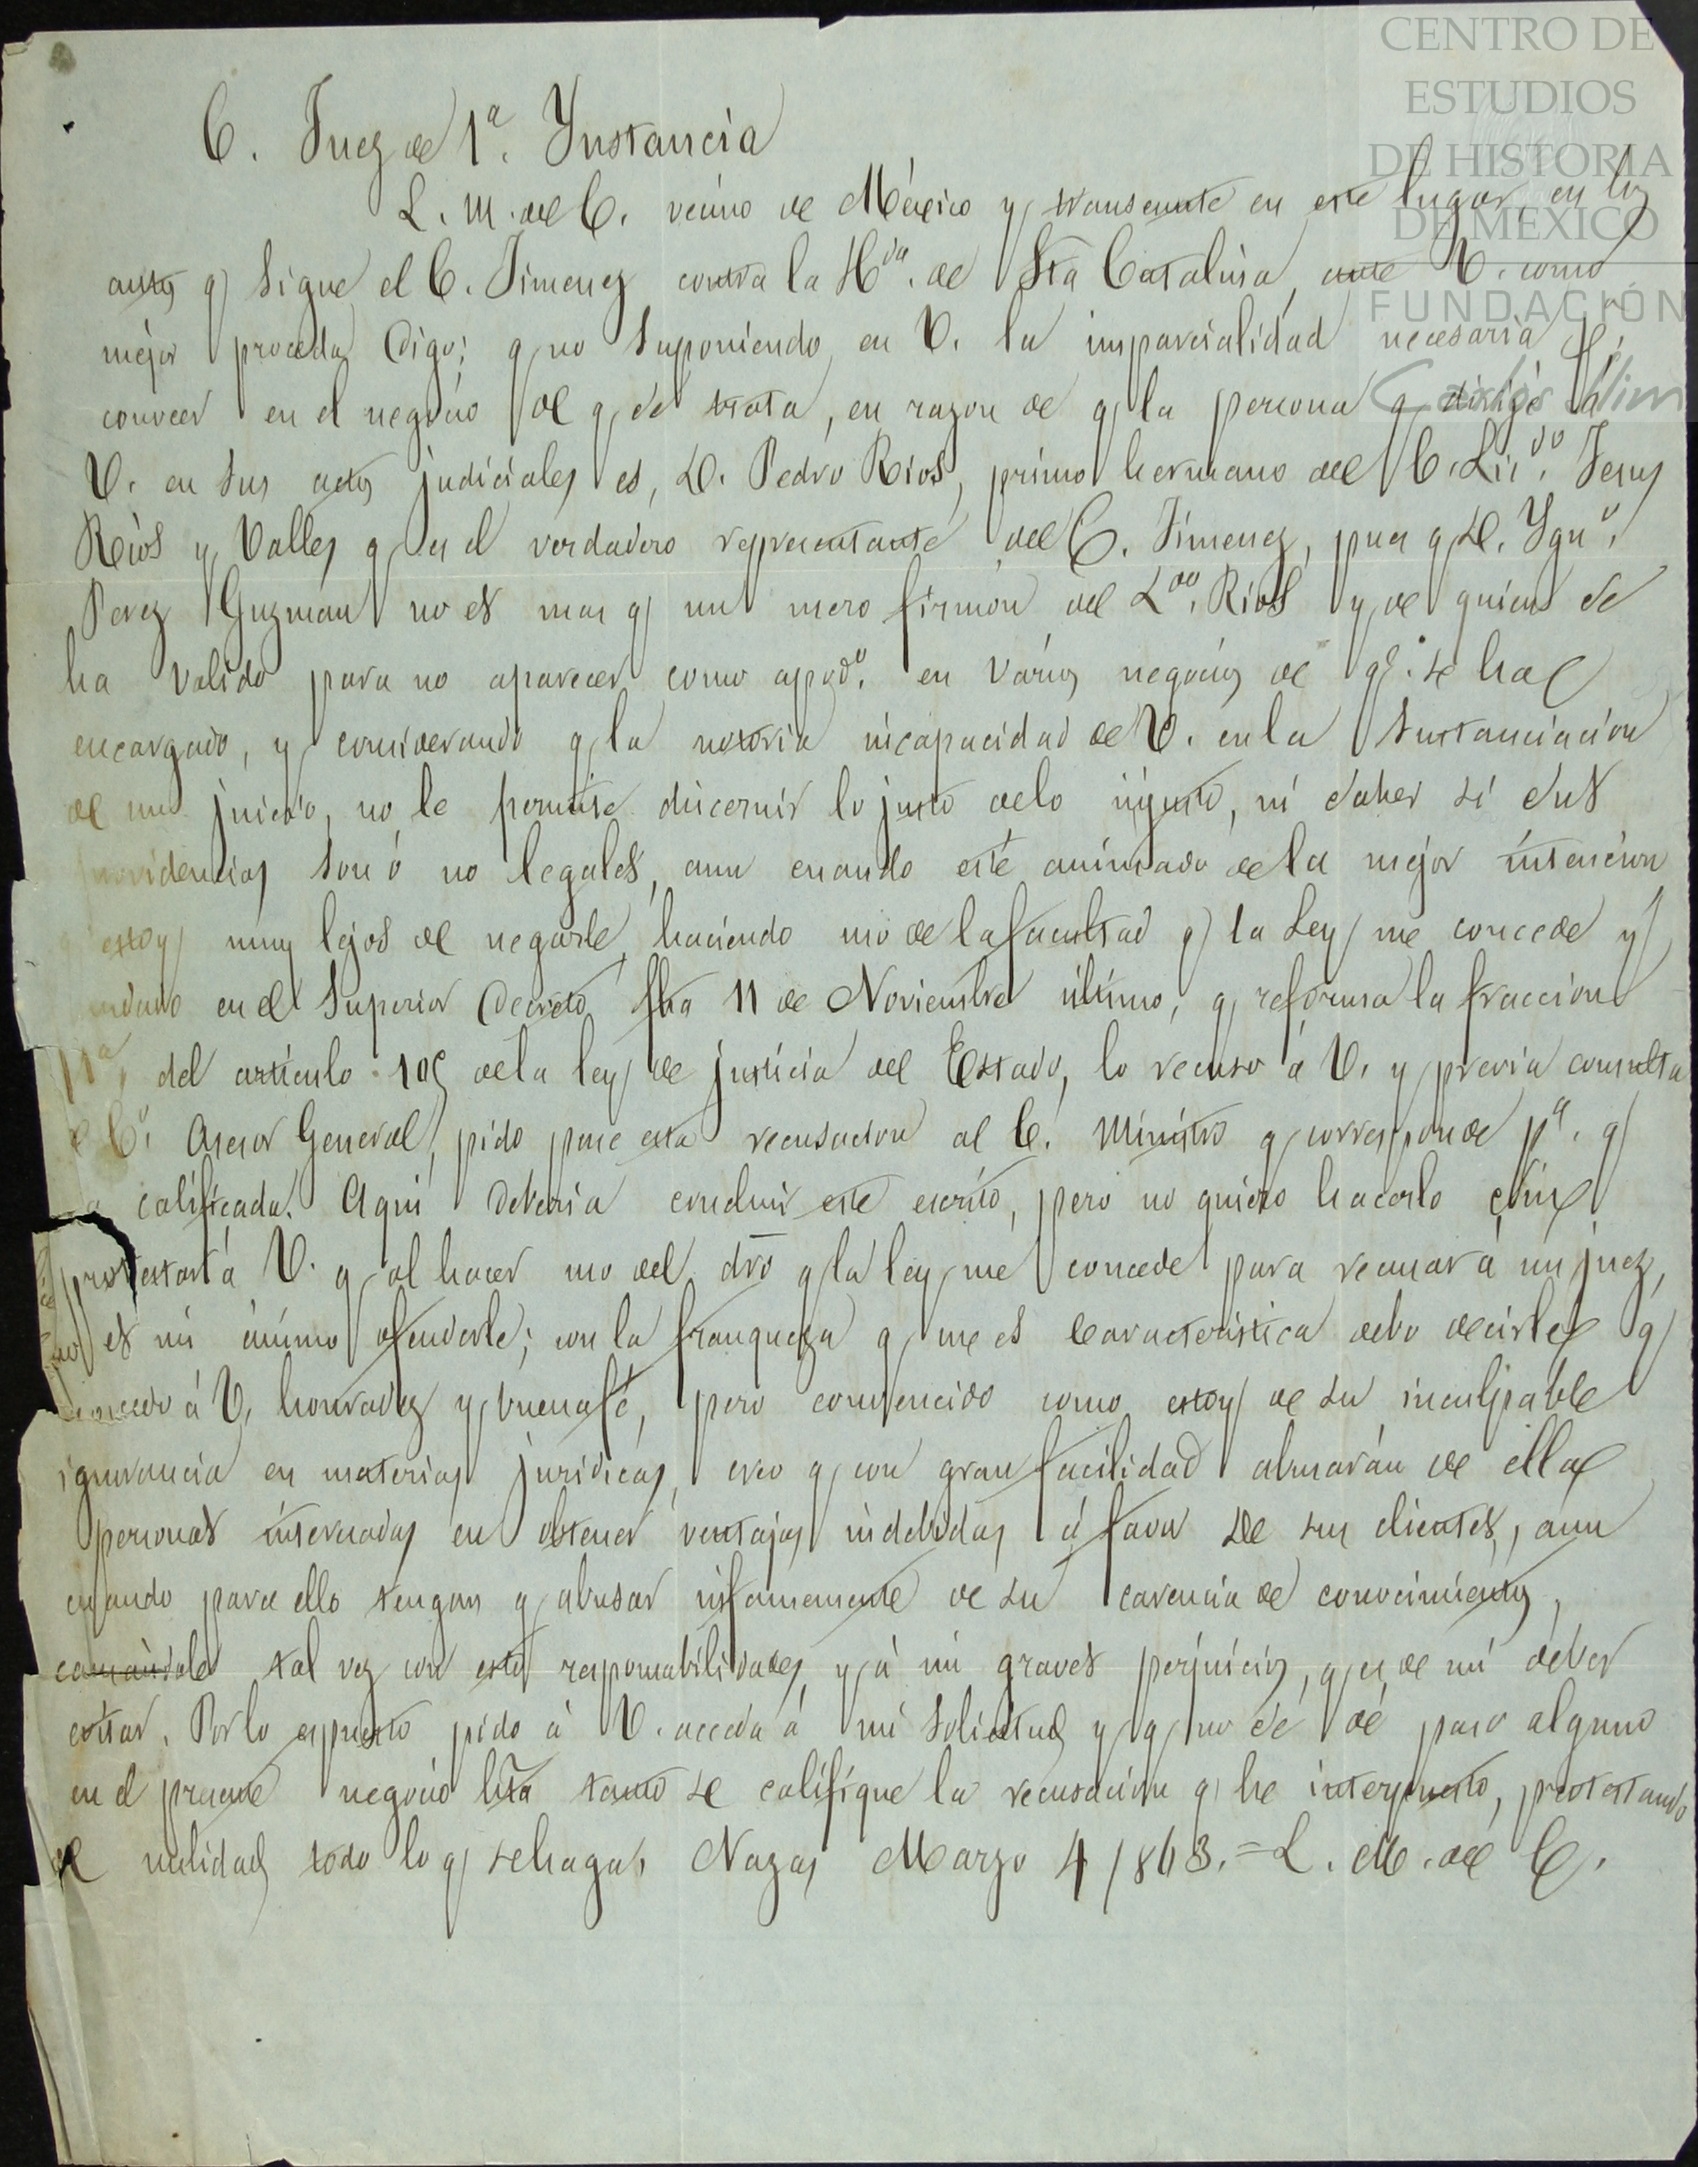 CENTRO DE
ESTUDIOS
DE HISTORIA
DE MEXICO
FUNDACIÓN
Carlos Slim
C. Juez de 1ª. Ynstancia
L. M. del C. vecino de México y transeunte en este lugar, en los
autos q. sigue el C. Jimenez contra la Hda. de Sta Catalina, ante V. como
mejor proceda digo: q. no suponiendo en V. la imparcialidad necesaria pª.
conocer en el negocio de q. se trata, en razon de q. la persona q. dirije á
V. en sus actos judiciales es, D. Pedro Rios, primo hermano del C. Licdo. Jesus
Rios y Valles q. es el verdadero representante del C. Jimenez, pues q. D. Ygno.
Perez Guzman no es mas q. un mero firmon del Ldo. Rios y de quien se
ha valido para no aparecer como apodo. en varios negocios de qe. se ha
encargado, y considerando q. la notoria incapacidad de V. en la sustanciacion
de un juicio, no le permite discernir lo justo delo injusto, ni saber si sus
providencias son ó no legales, aun cuando esté animado dela mejor intencion
q. estoy muy lejos de negarle, haciendo uso de la facultad q. la Ley me concede y
fundado en el Superior Decreto fha 11 de Noviembre último, q. reforma la fraccion
11ª. del artículo 105 dela ley de justicia del Estado, lo recuso á V. y previa consulta
C. Asesor General, pido pase esta recusacion al C. Ministro q. corresponde pª. q.
calificada. Aqui deberia concluir este escrito, pero no quiero hacerlo sin
protestar á V. q. al hacer uso del dro q. la ley me concede para recusar á un juez,
no es mi ánimo ofenderle; con la franqueza q. me es caracteristica debo decirle q.
concedo á V. honradez y buena fé, pero convencido como estoy de su inculpable
ignorancia en materias juridicas, creo q. con gran facilidad abusarán de ella
personas interesadas en obtener ventajas indebidas á favor de sus clientes, aun
cuando para ello tengan q. abusar infamemente de su carencia de conocimientos,
causandole tal vez con esto responsabilidades, y á mi graves perjuicios, q. es de mi deber
evitar. Por lo espuesto pido á V. acceda á mi solicitud y q. no se dé paso alguno
en el presente negocio hta tanto se califique la recusacion q. he interpuesto, protestando
de nulidad todo lo q. se haga. Nazas Marzo 4/863.=L. M. del C.